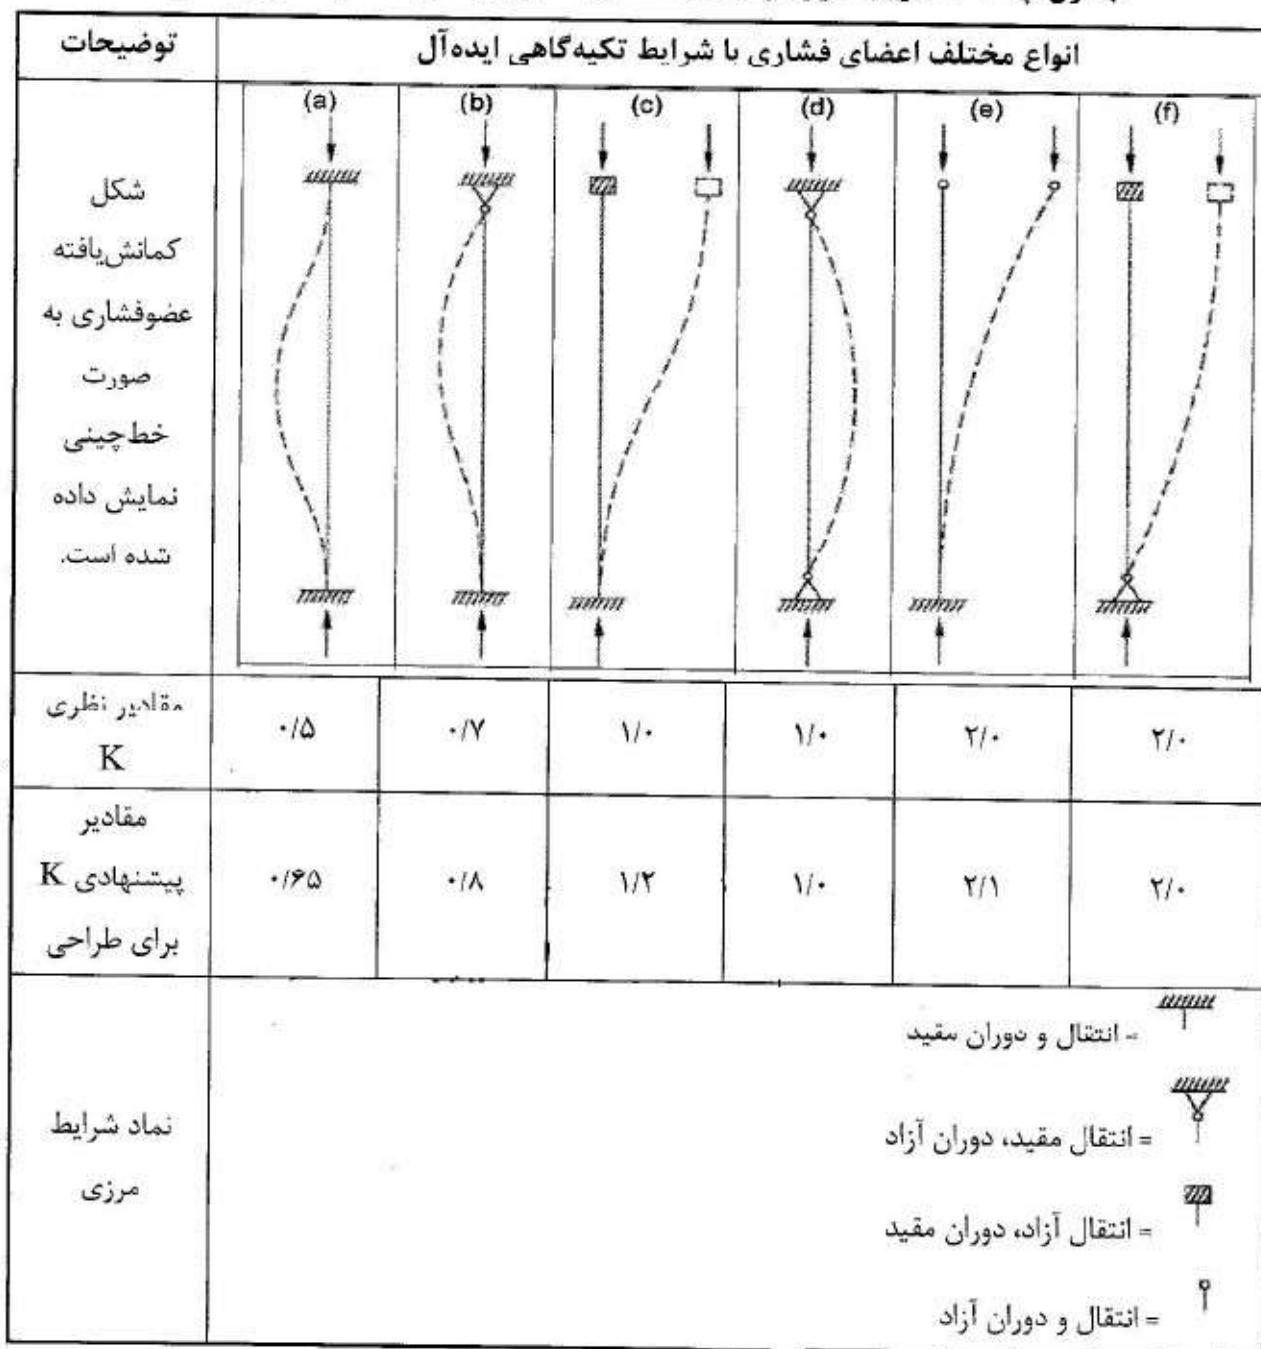 توضیحات
انواع مختلف اعضای فشاری با شرایط تکیه‌گاهی ایده‌آل
شکل
کمانش‌یافته
عضوفشاری به
صورت
خط‌چینی
نمایش داده
شده است.
(a)
(b)
(c)
(d)
(e)
(f)
مقادیر نظری
K
۰/۵
۰/۷
۱/۰
۱/۰
۲/۰
۲/۰
مقادیر
پیشنهادی K
برای طراحی
۰/۶۵
۰/۸
۱/۲
۱/۰
۲/۱
۲/۰
نماد شرایط
مرزی
= انتقال و دوران مقید
= انتقال مقید، دوران آزاد
= انتقال آزاد، دوران مقید
= انتقال و دوران آزاد